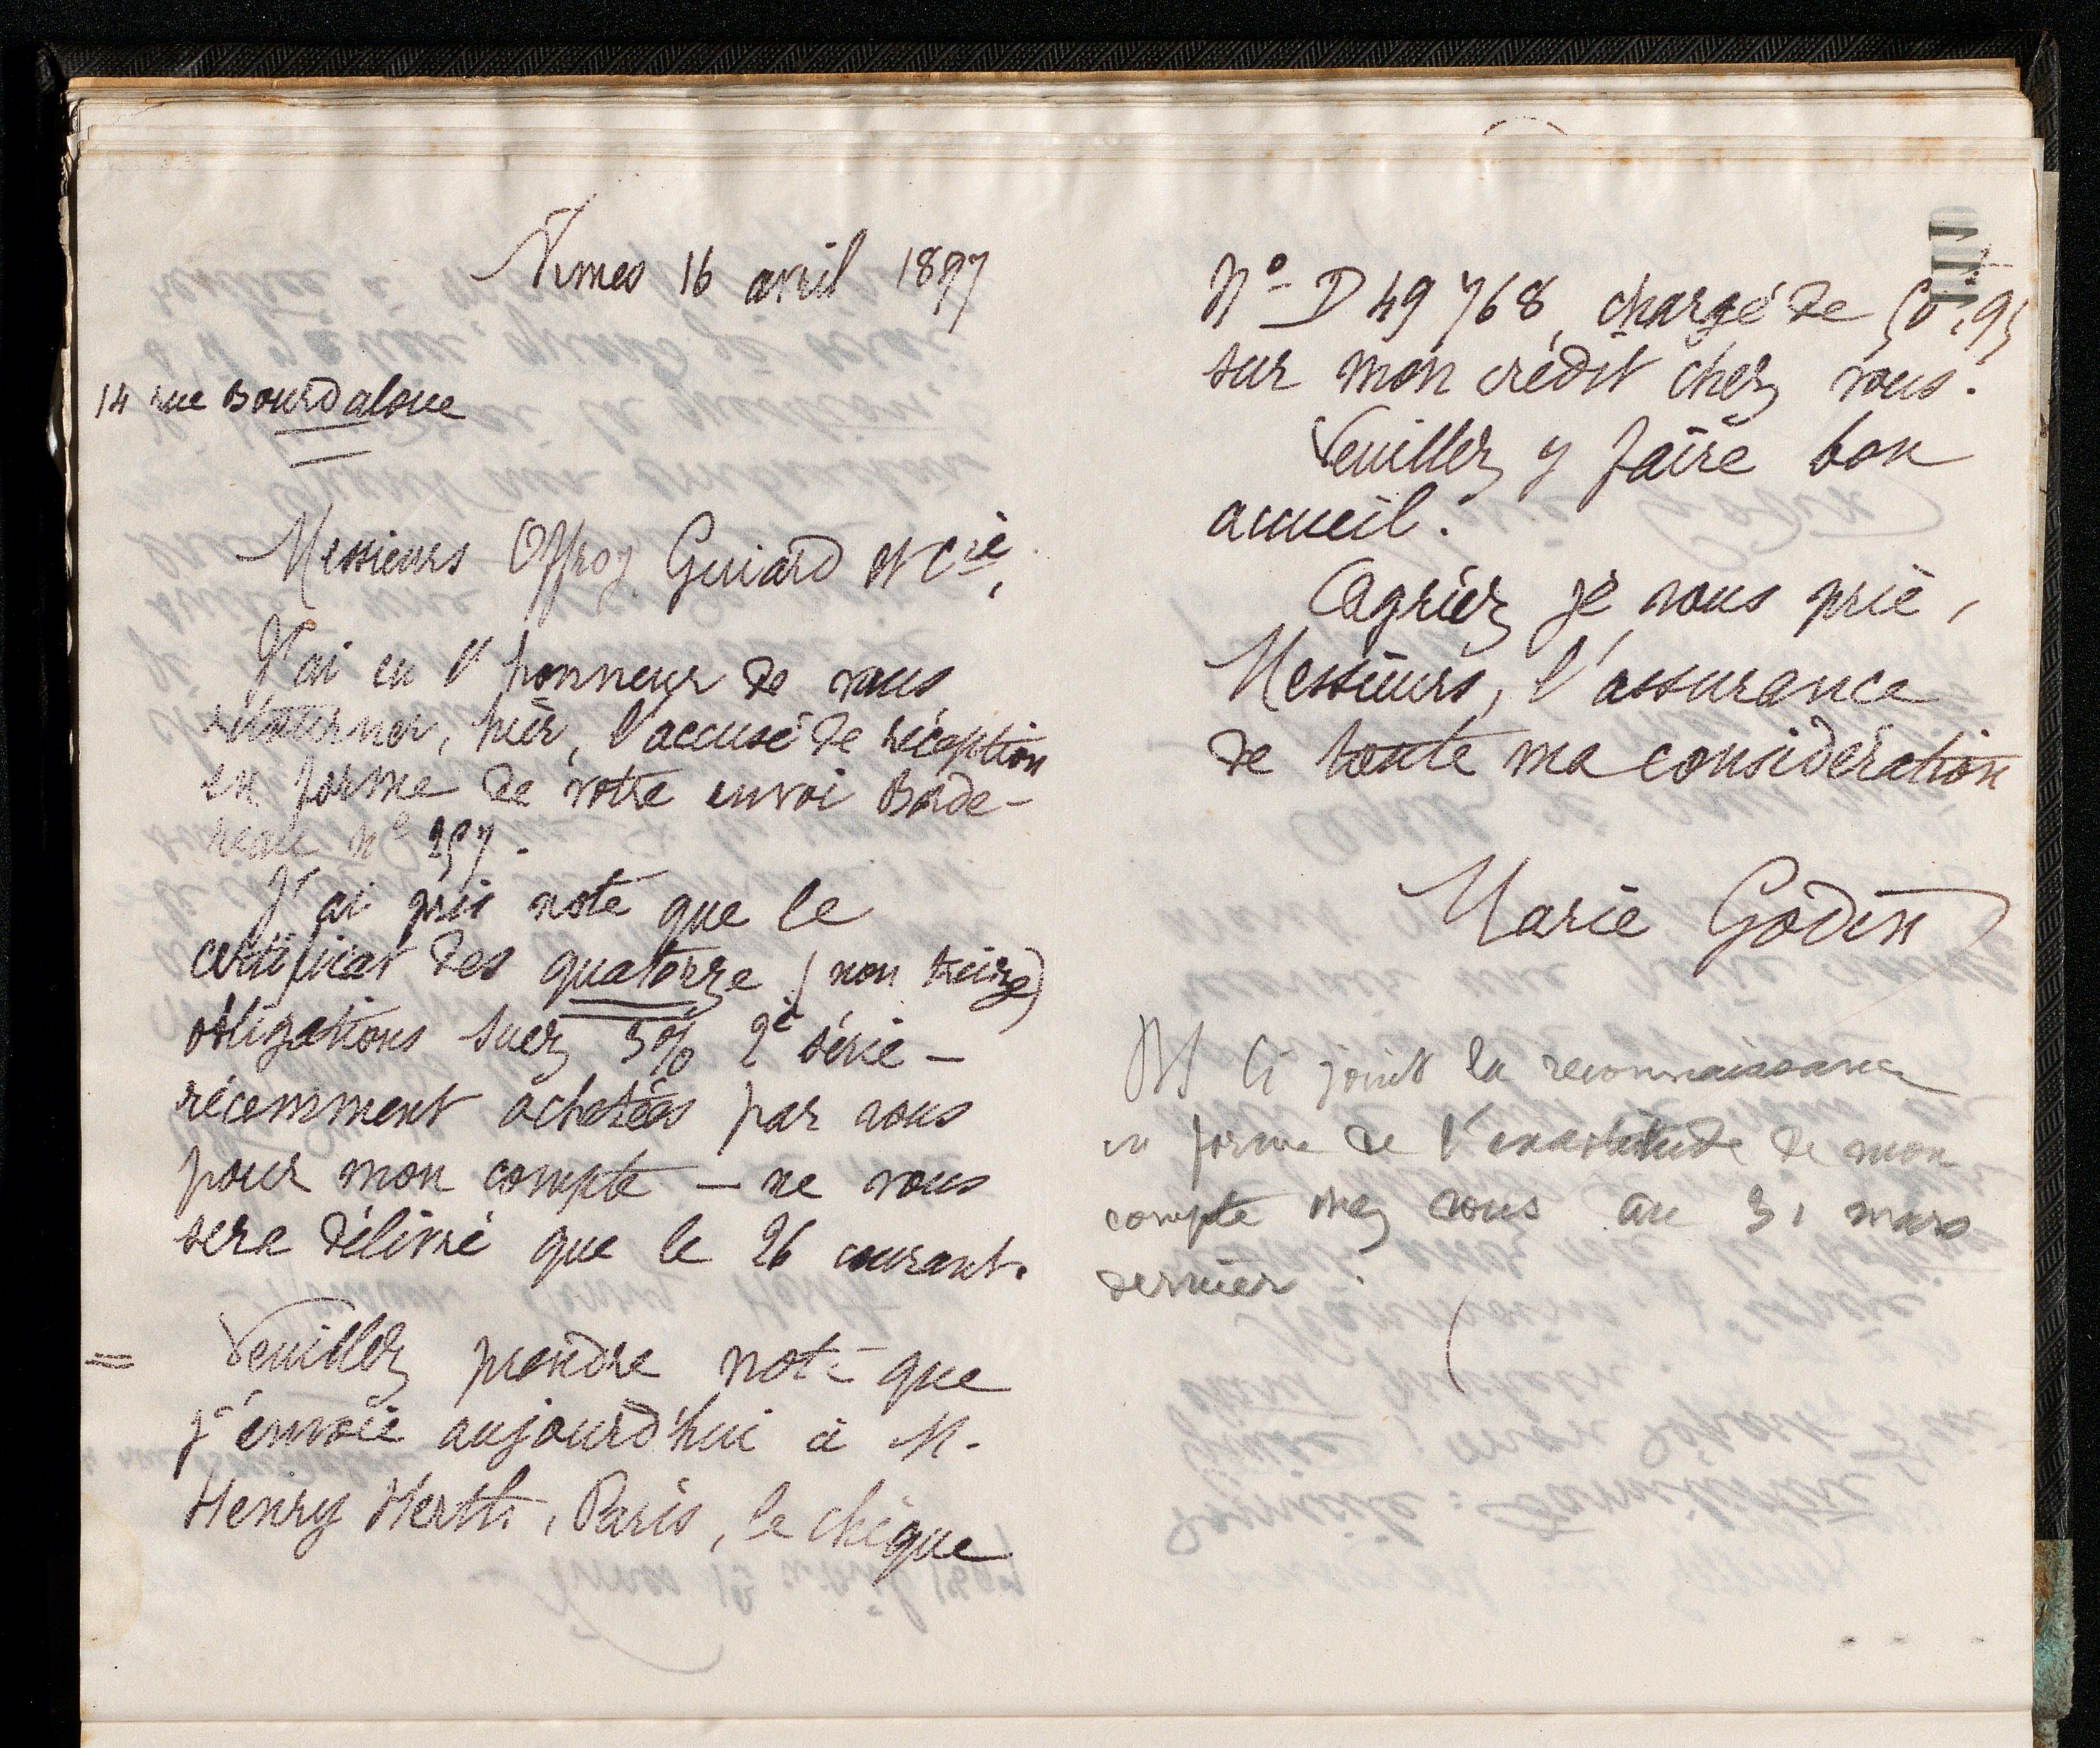 Nimes 16 avril 1897
14 rue Bourdaloue
Messieurs Offroy Guiard et Cie,
J'ai eu l'honneur de vous
retourner, hier, l'accusé de réception
en forme de votre envoi Borde-
reau n° 257.
J'ai pris note que le
certificat des quatorze (non treize)
obligations Suez 5% 2e série –
récemment achetées par vous
pour mon compte – ne vous
sera délivré que le 26 courant.
= Veuillez prendre note que
j'envoie aujourd'hui à M.
Henry Herth, Paris, le chèque
N° D 49 768, chargé de 50,95
sur mon crédit chez vous.
Veuillez y faire bon
accueil.
Agréez je vous prie,
Messieurs, l'assurance
de toute ma considération
Marie Godin
PS Ci joint la reconnaissance
en forme de l'exactitude de mon
compte chez vous au 31 mars
dernier.